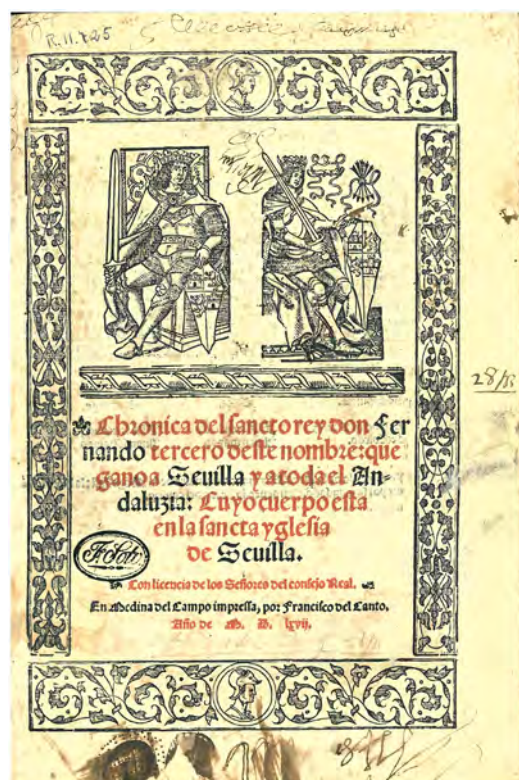 R.11.725
28/
✠ Chronica del sancto rey don Fer
nando tercero deste nombre: que
gano a Seuilla y a toda el An-
daluzia: Cuyo cuerpo esta
en la sancta yglesia
de Seuilla.
Con licencia de los Señores del consejo Real.
En Medina del Campo impressa, por Francisco del Canto.
Año de M. D. lxvij.